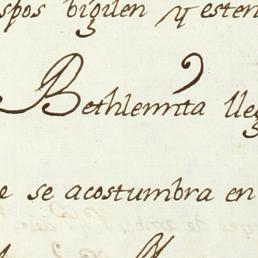 spos bigilen y esten
Bethlemita lleg
e se acostumbra en